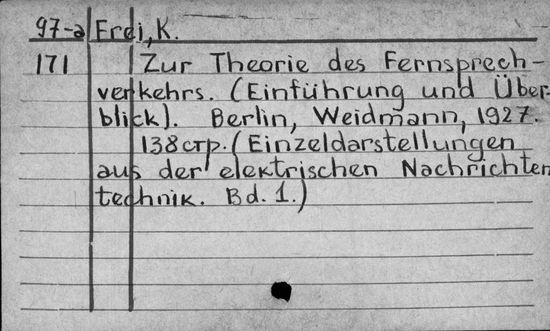 97-а Erdi, K.
171 Zur Theorie des Fernsprech-
verkehrs. (Einführung und Über-
blick). Berlin, Weidmann, 1927.
138 стр. (Einzeldarstellungen
aus der elektrischen Nachrichten
technik. Bd. 1.)